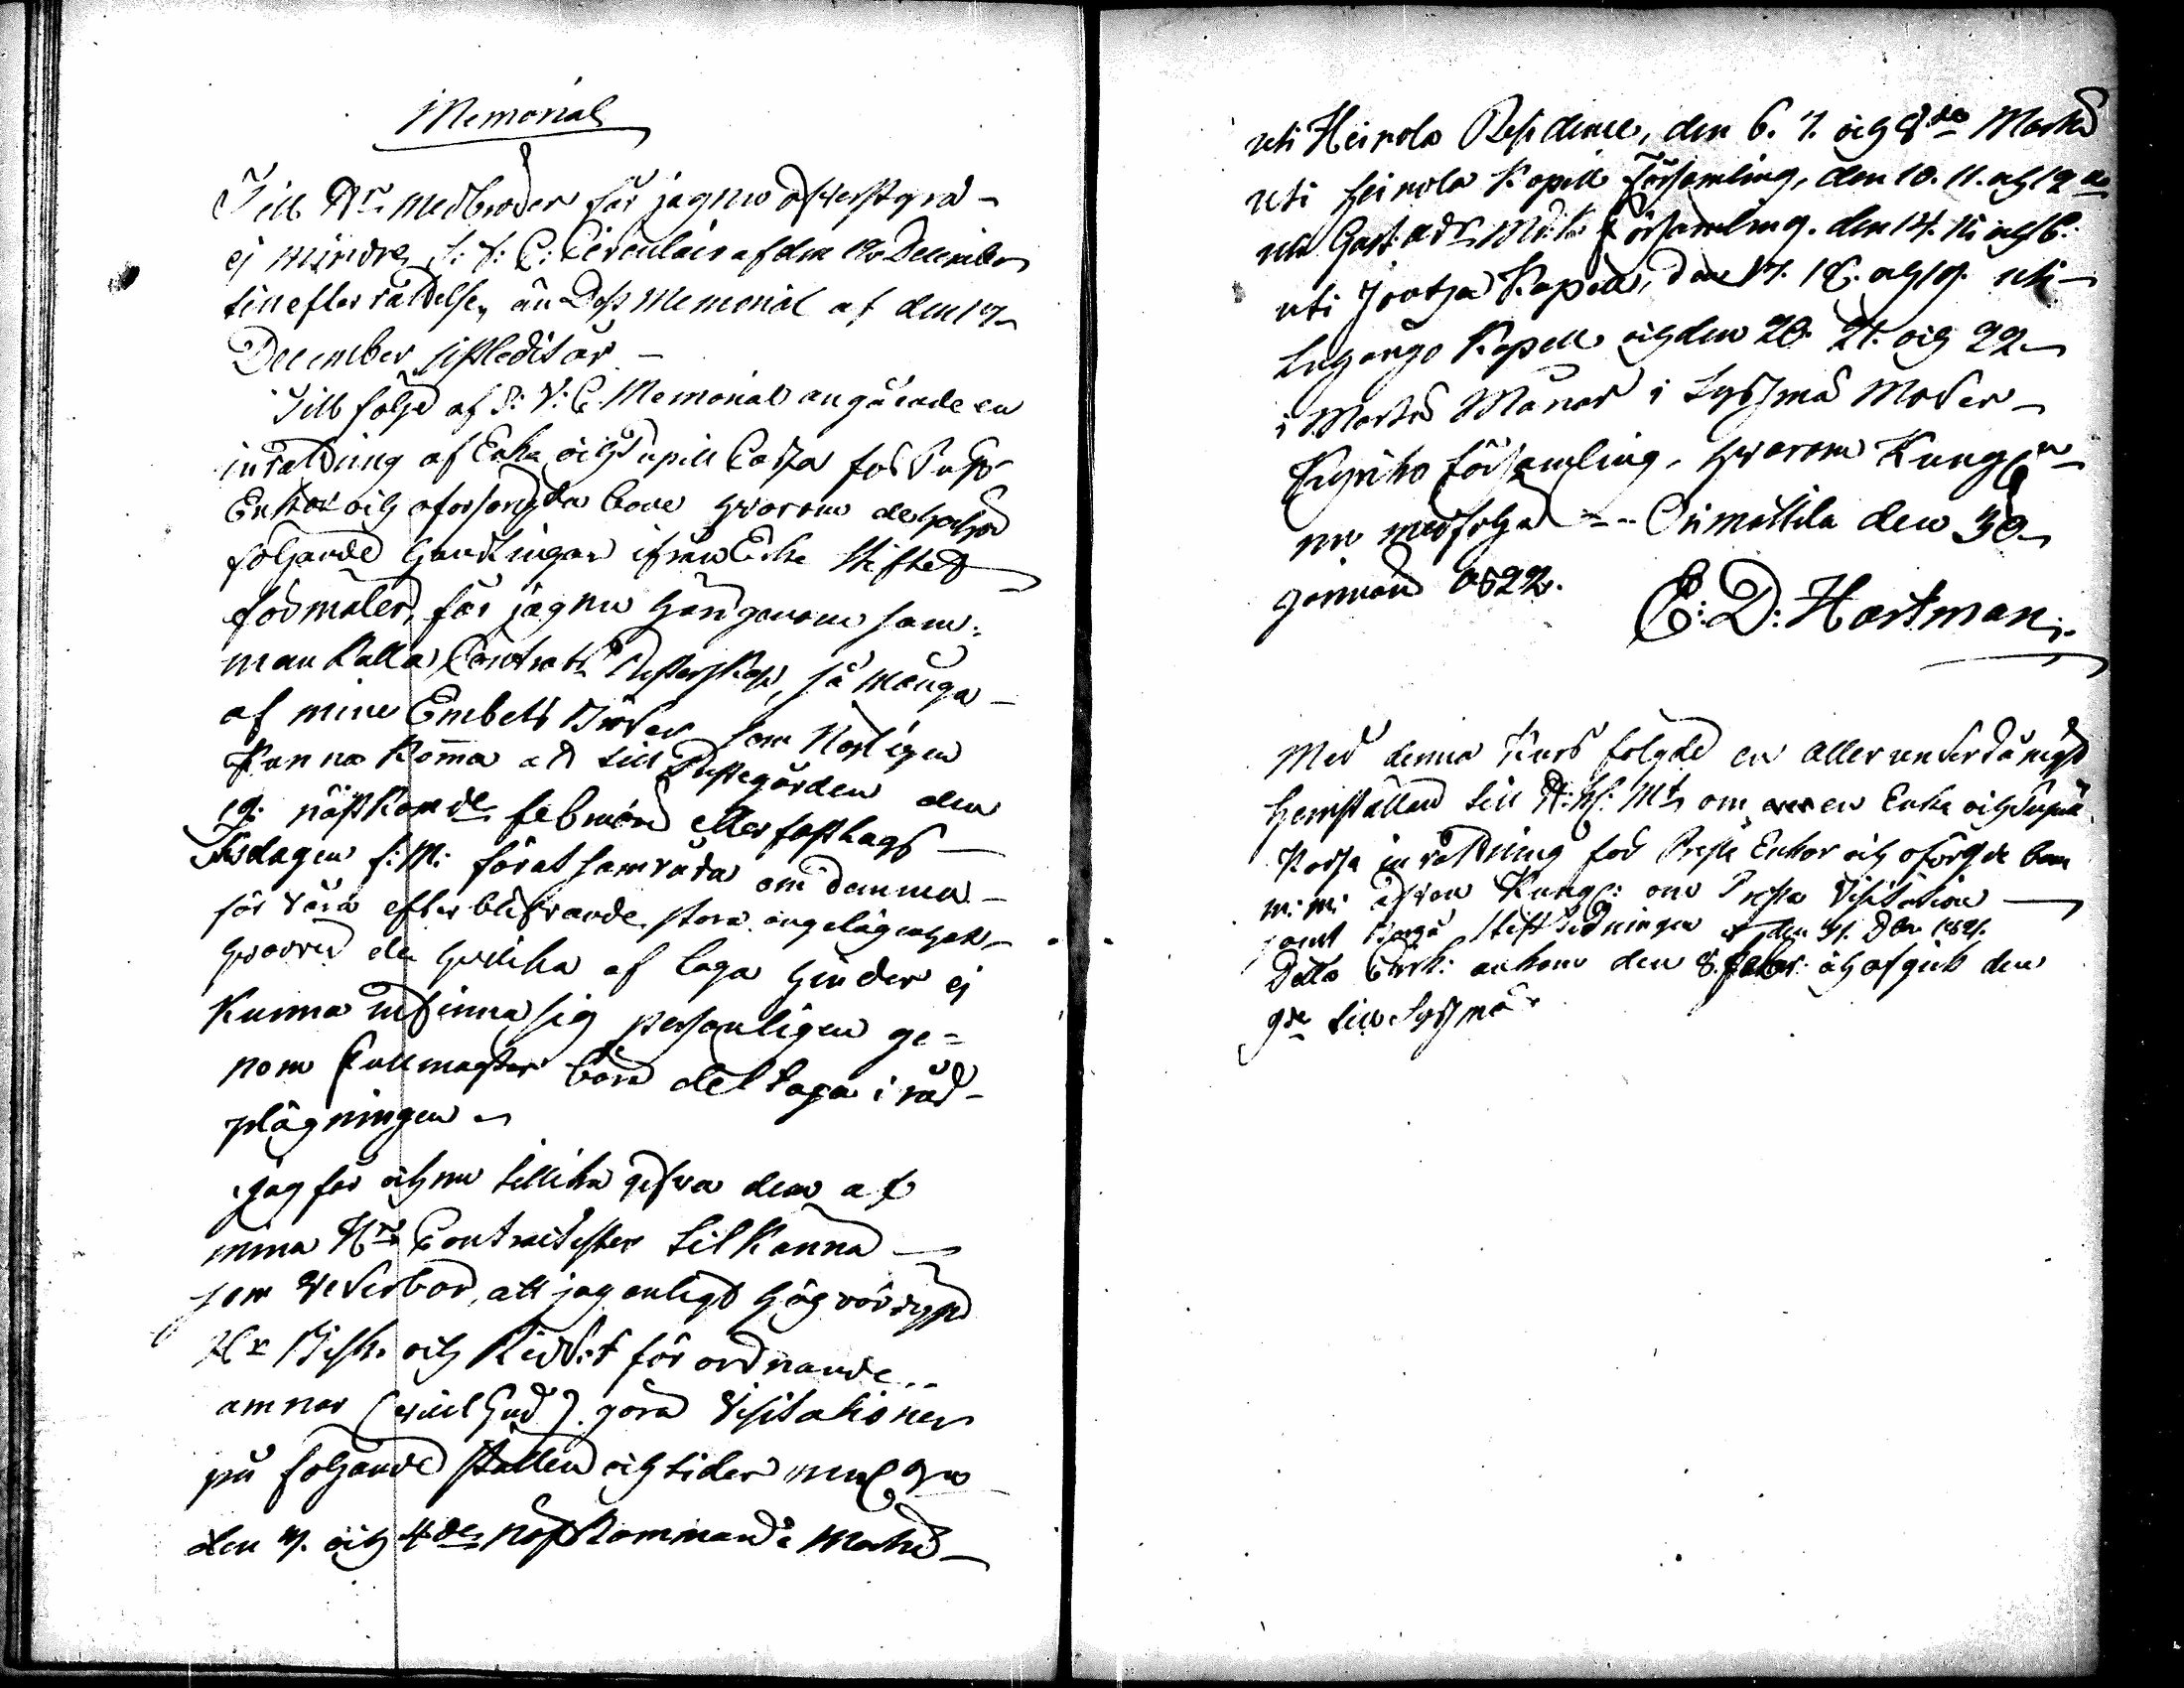 Memorial
Till Hr. Medbröder får jag nu 
ej mindre S: V: C: Circulair af den 12 December
till efterrättelse, än Dess Memorial af den 19
December sistledit år
Till följe af S: V: C Memorial angående en
inrättning af Enke och Pupill Cassa för 
Enkor och oforsorgda barn hvarom 
följande Handlingar ifrån Stiftet
förmäler, får jag nu härigenom sam-
mankalla Contracts Presterskap, så många
af mine Embets Bröder som 
kunna komma att till Prestegården den
19. nästkomde februari eller fastlags
Tisdagen f: M: för at samråda om denna
för våra efterblifvande stora angelägenhet
hvarvid de hvilka af laga hinder ej
kunna infinna sig personligen ge-
nom fullmagter böra deltaga i råd-
plägningen
Jag får och nu tillika gifva dem af
mina Hrr Contractister tilkänna
som vederbör, att jag enligt Högvördige
Hr Bisk. och Ridd:s förordnande
ämnar (vill Gud) göra Visitationer
på följande ställen och tider nemligen
den 3. och 4de nästkommande Martii
uti Heinola Residence, den 6. 7. och 8de Martii
uti Heinola Kapell Församling, den 10. 11. och 12
uti Gust: Ads Mk: Församling. den 14. 15 och 16.
uti Joutsa Kapell, den 17. 18. och 19. uti
Luhango Kapell och den 20. 21. och 22
i Martii Månad i Sysmä Moder
Kyrko församling, hvarom Kungl:
nu medfölja Orimattila den 30
Januari 1822.
E: D: Hartman
Med denna Curs följde en aller underdånigst
hemställan till H: K: Mt om en Enke och Pupill
Kassa inrättning för Preste Enkor och oförs:de barn
m: m: äfven Kungl: om Prosta Visitation
samt Borgå Stifts Tidningar den 31. Dbr 1821.
Detta Cirk: ankom den 8. febr: och afgick den
9de till Sysmä